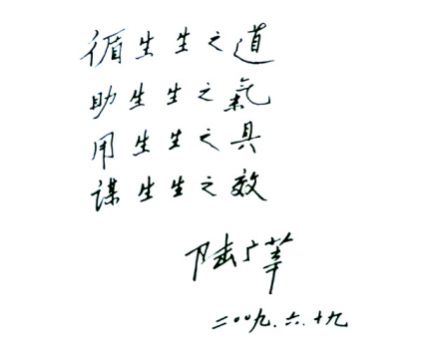 循生生之道
助生生之氣
用生生之具
谋生生之效
陆广莘
二〇〇九.六.十九